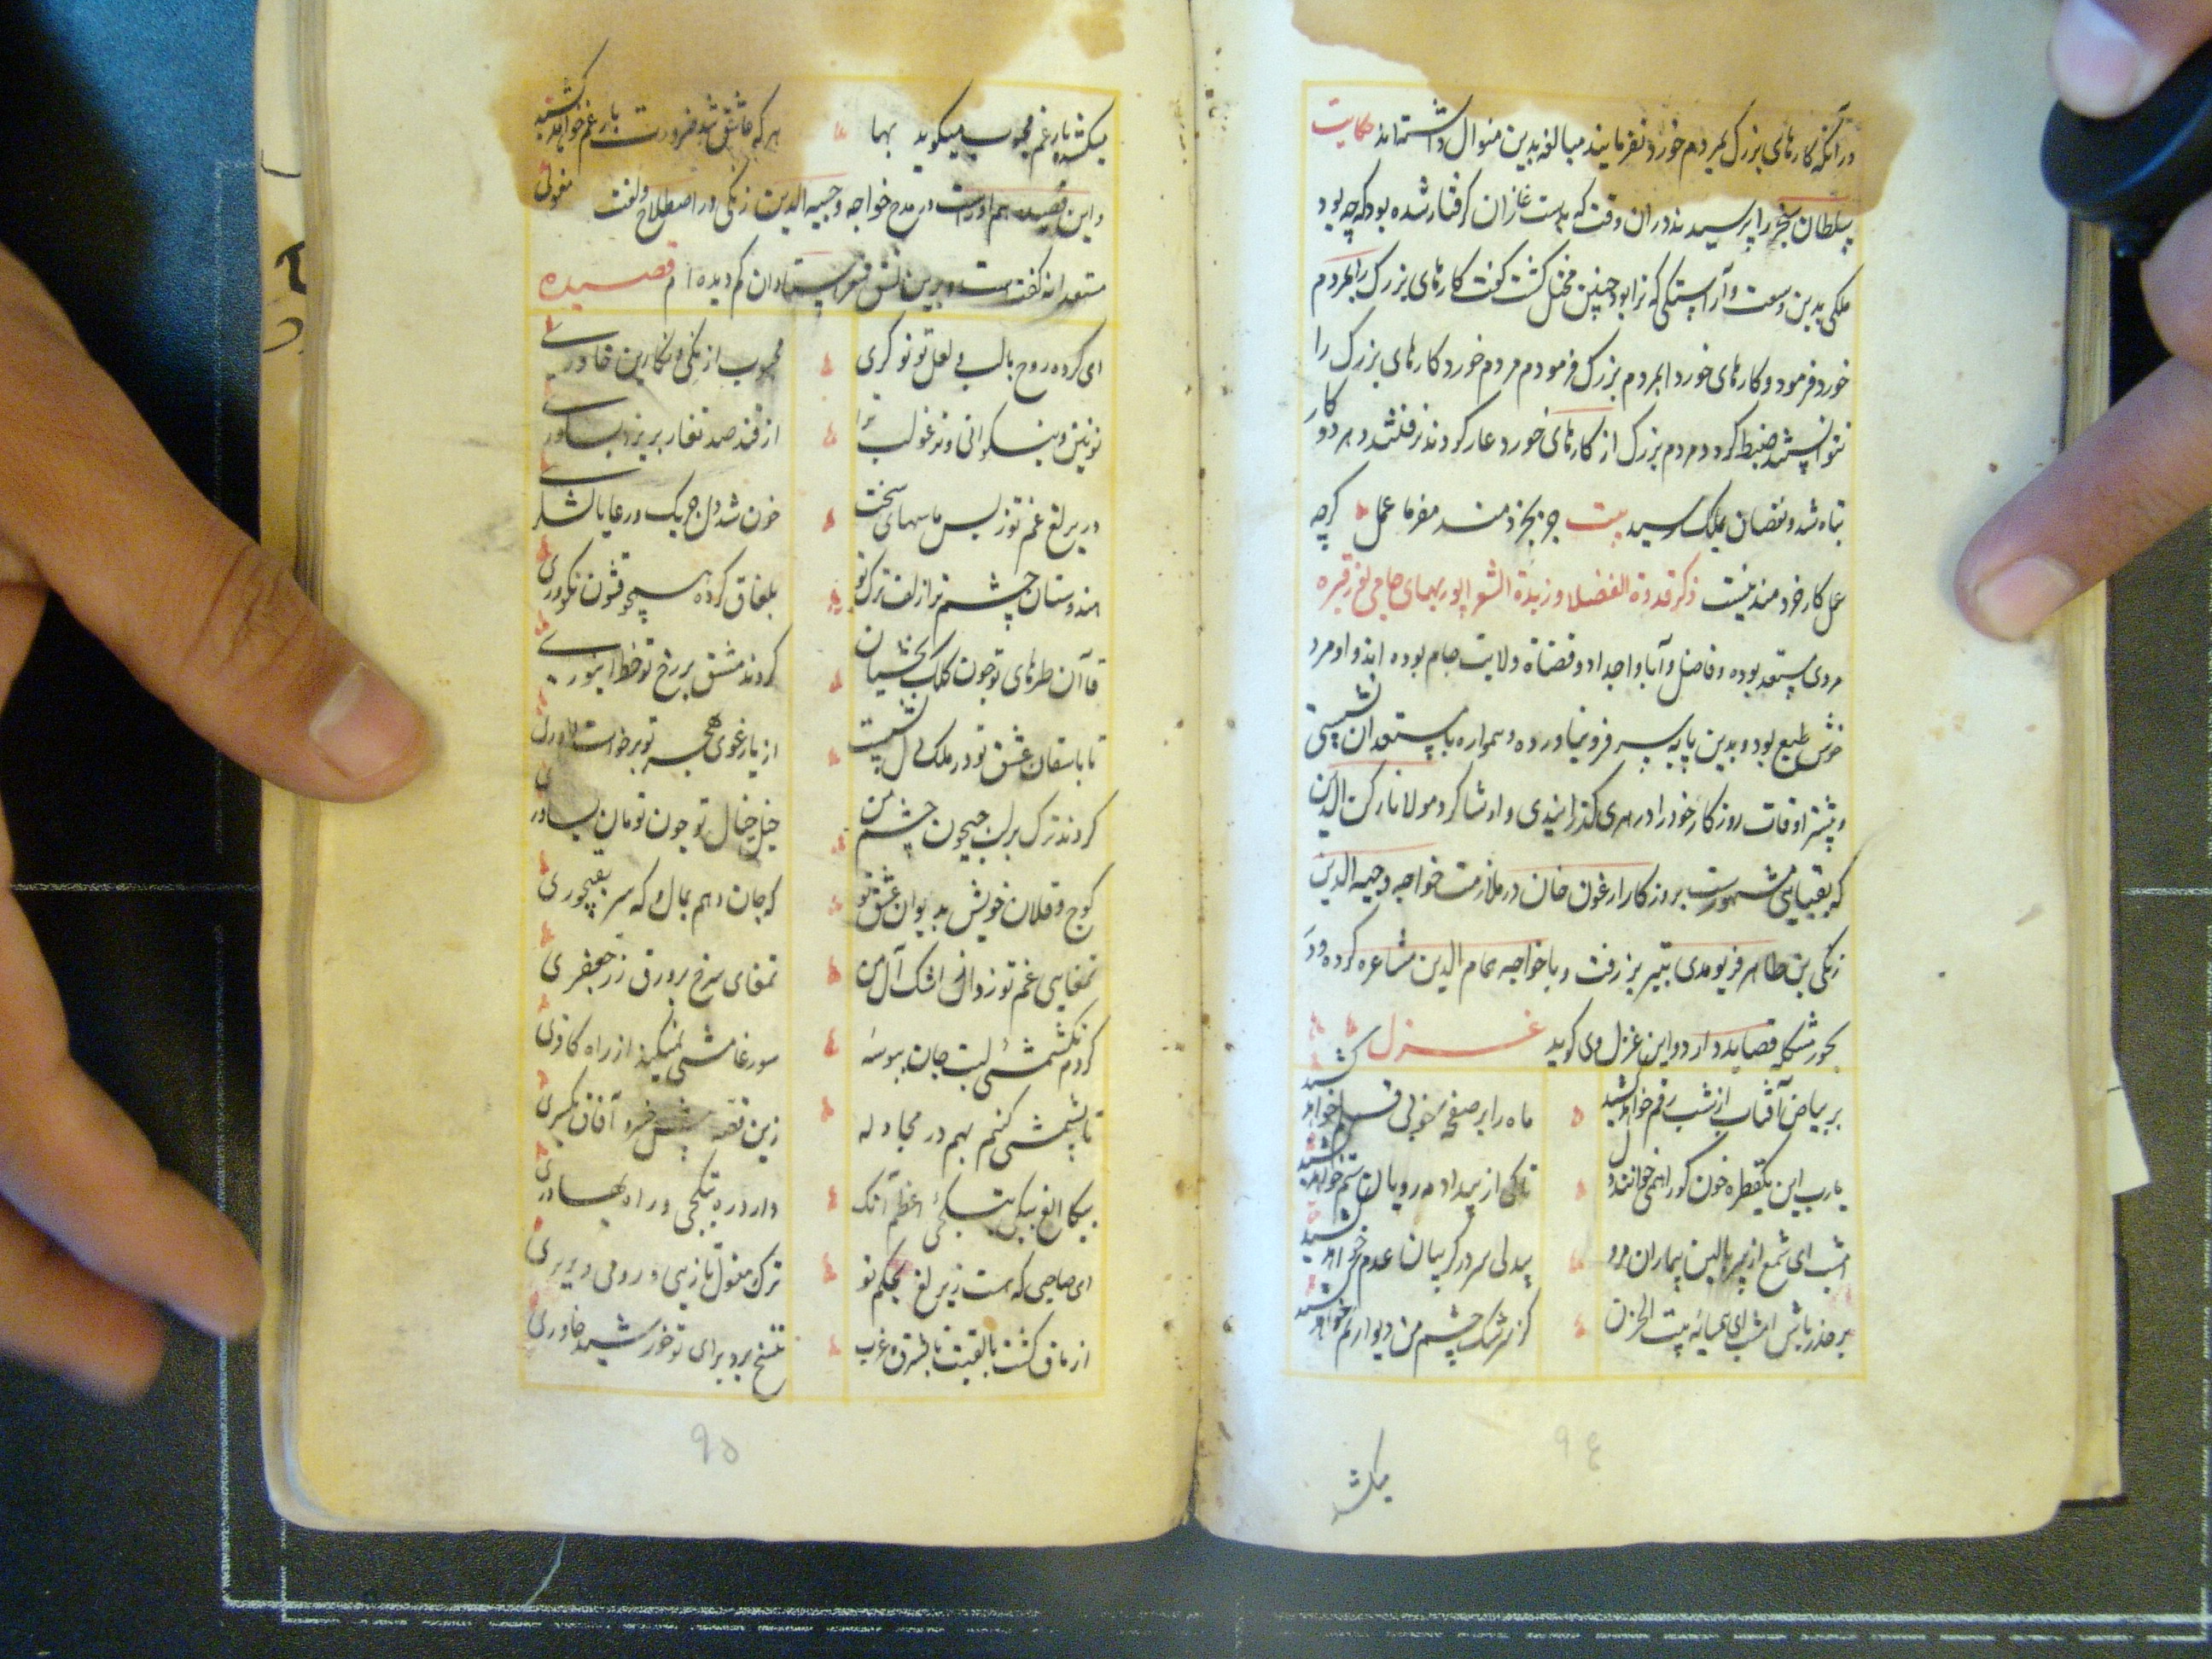 در آنکه کارهای بزرگ بمردم خورد نفرمایند مبالغه بدین منوال داشته‌اند حکایت
سلطان سنجر را پرسیدند در ان وقت که بدست غازان گرفتار شده بود که چه بود
ملکی بدین وسعت و آراستگی که ترا بود چنین مختل گشت گفت کارهای بزرگ را بمردم
خورد فرمودم و کارهای خورد را بمردم بزرگ فرمودم مردم خورد کارهای بزرگ را
نتوانستند ضبط کرد و مردم بزرگ از کارهای خورد عار کردند و نرفتند و هر دو کار
تباه شد و نقصان بملک رسید بیت جز بخردمند مفرما عمل گرچه
عمل کار خردمند نیست ذکر قدوة الفضلا و زبدة الشعرا پوربهای جامی
مردی مستعد بوده و فاضل و آبا و اجداد او قضاة ولایت جام بوده‌اند و او مرد
خوش طبع بود و بدین پایه سر فرو نیاورده و همواره با مستعدان نشستی
و بیشتر اوقات روزگار خود را در هری گذرانیدی و او شاگرد مولانا رکن الدین
که بقبایی مشهورست بروزگار ارغون خان در ملازمت خواجه وجیه الدین
زنگی بن طاهر فریومدی بتبریز رفت و با خواجه همام الدین مشاعره کرده و در
بحور مشکله قصاید دارد و این غزل وی گوید غزل
بر بیاض آفتاب از شب رقم خواهد کشید ماه را بر صفحه خوبی قلم خواهد کشید
یارب این یکقطره خون کورا همی خوانند دل تاکی از بیداد مه رویان ستم خواهد کشید
امشب ای شمع از سر بالین بیماران مرو بیدلی سر در گریبان عدم خواهد کشید
بر حذر باش امشب ای همسایه بیت الحزن کز سرشک چشم من دیوار نم خواهد کشید
میکشد
۹۴
میکشد بار غم محبوب میگوید بها هر که عاشق شد ضرورت بار غم خواهد کشید
و این قصیده هم او راست در مدح خواجه وجیه الدین زنگی در اصطلاح و لغت مغولی
مستعدانه گفته است و برین نسق شعر استادان کم دیده‌ام قصیده
ای کرده روح با لب لعل تو نوکری محبوب ازنکی و نکارین خاوری
نوئین نیکوانی و نزغوی لب ترا از قند صد تغار بریزد بساوری
در یرلغ غم تو ز بس ماسهای سخت خون شد دل چریک و رعایا
هندوستان چشم ترا زلف ترک تو بلغاق کرده همچو قشون نکودری
قاآن طرهای تو چون کلک بخشیان کردند مشق بر رخ تو خط ایغوری
تا باسقاق عشق تو در ملک دل نشست از یارغوی هجر تو برخاست داوری
کردند ترک بر لب جیحون چشم من خیل خیال تو چون تومان یساوری
کوچ و قلان خویش بدیوان عشق تو که جان دهم بمال و که سر بقبچوری
تمغاجی غم تو زد از اشک آل من تمغای سرخ بر ورق زر جعفری
کردم تکشمشی لبت جان ببوسهٔ سورغامشی نمیکند از راه کافری
تا بشمشی کنم بهم در مجادله زین قصه پیش خسرو آفاق یکسری
بیکا الغ بیکی بتکچی اعظم آنک دارد ره بتکچی و راه بهادری
ای صاحبی که هست ز یرلغ بحکم تو ترک و مغول و تازی و رومی و بربری
از ماق گشت بالقبت تا بشرق و غرب تنسخ برد برای تو خورشید خاوری
۹۵